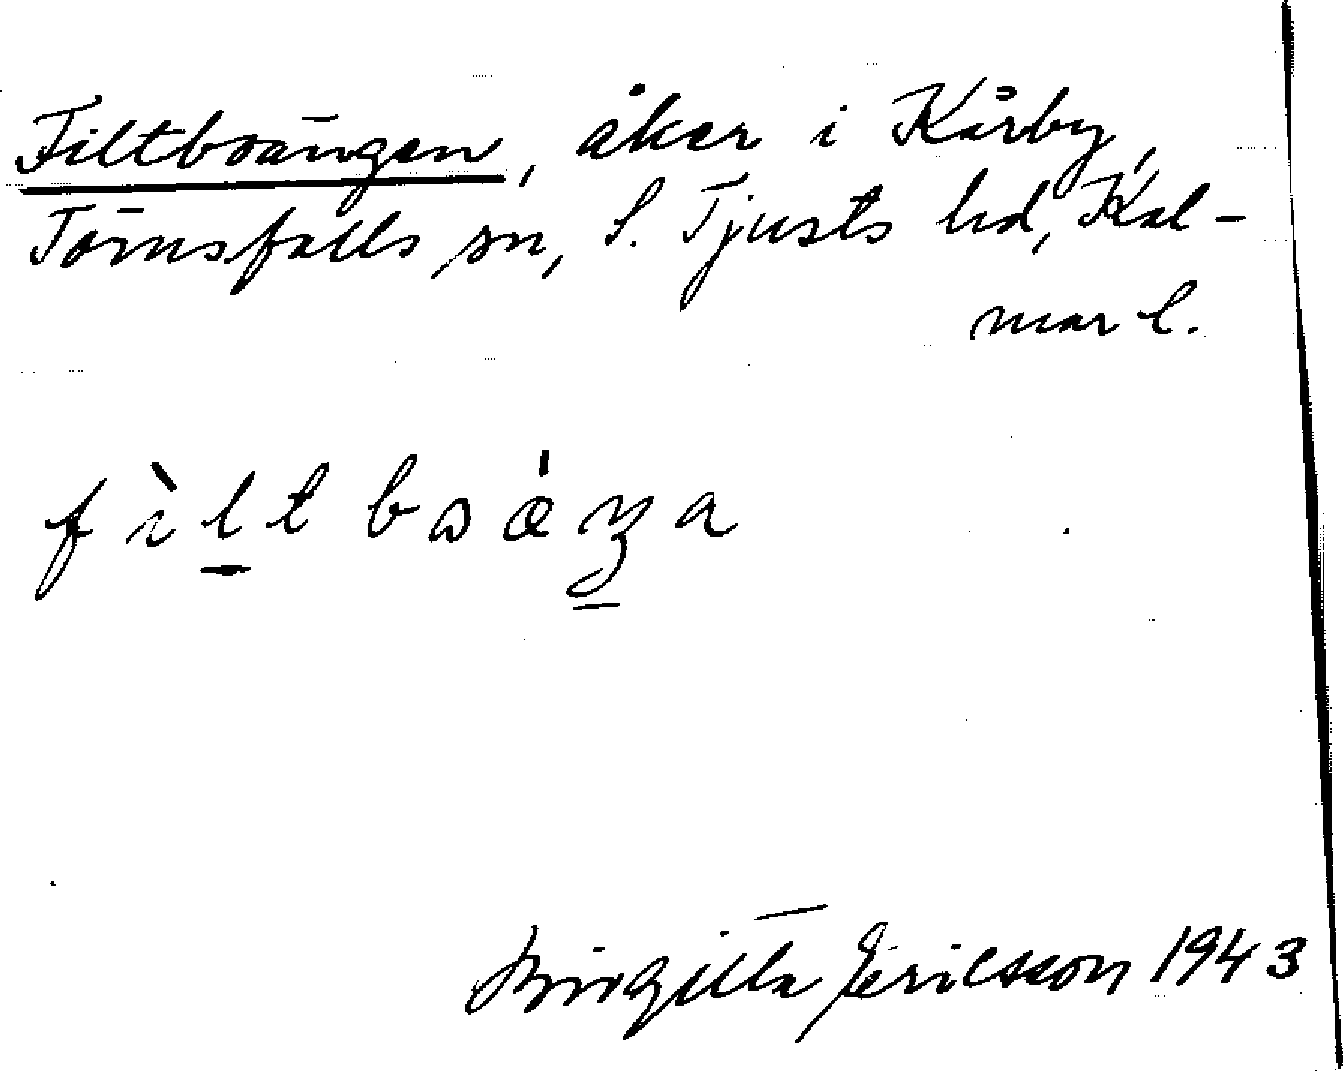 Filtboängen, åker i Kårby,
Törnsfalls sn, S. Tjusts hd, Kal-
mar l.
fìltbɷǽŋa
Birgitta Ericsson 1943